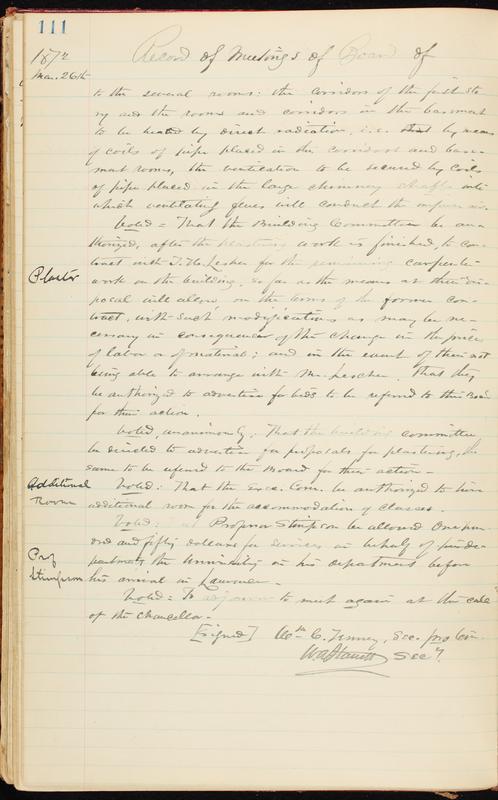 111
1872 Record of Meetings of Board of
Mar. 26th
to the several rooms: the corridors of the first sto
ry and the rooms and corridors in the basement
to be heated by direct radiation, i.e. that by means
of coils of pipe placed in the corridors and base-
ment rooms, the ventilation to be secured by coils
of pipe placed in the large chimney shafts into
which ventilating flues will conduct the impure air.
Voted = That the Building Committee be au-
thorized, after the plastering work is finished, to con-
tract with for the remaining carpenter
Plaster
work on the building, so far as the means at their dis-
posal will allow, on the terms of the former con-
tract, with such modifications as may be ne-
cessary in consequence of the change in the price
of labor or of material; and in the event of their not
being able to arrange with Mr. , that they
be authorized to advertise for bids to be referred to this Board
for their action.
Voted, unanimously. That the building committee
be directed to advertise for proposals for plastering, the
same to be referred to the Board for their action -
Additional
Room
Voted: That the Exec. Com. be authorized to hire
additional room for the accommodation of classes.
Voted: That Professor Stimpson be allowed One hun-
dred and fifty dollars for services in behalf of
the University in his department before
Prof
Stimpson
his arrival in Lawrence -
Voted = To adjourn to meet again at the call
of the Chancellor -
[Signed] Wm C. Tenney, Sec. pro tem
Secy.